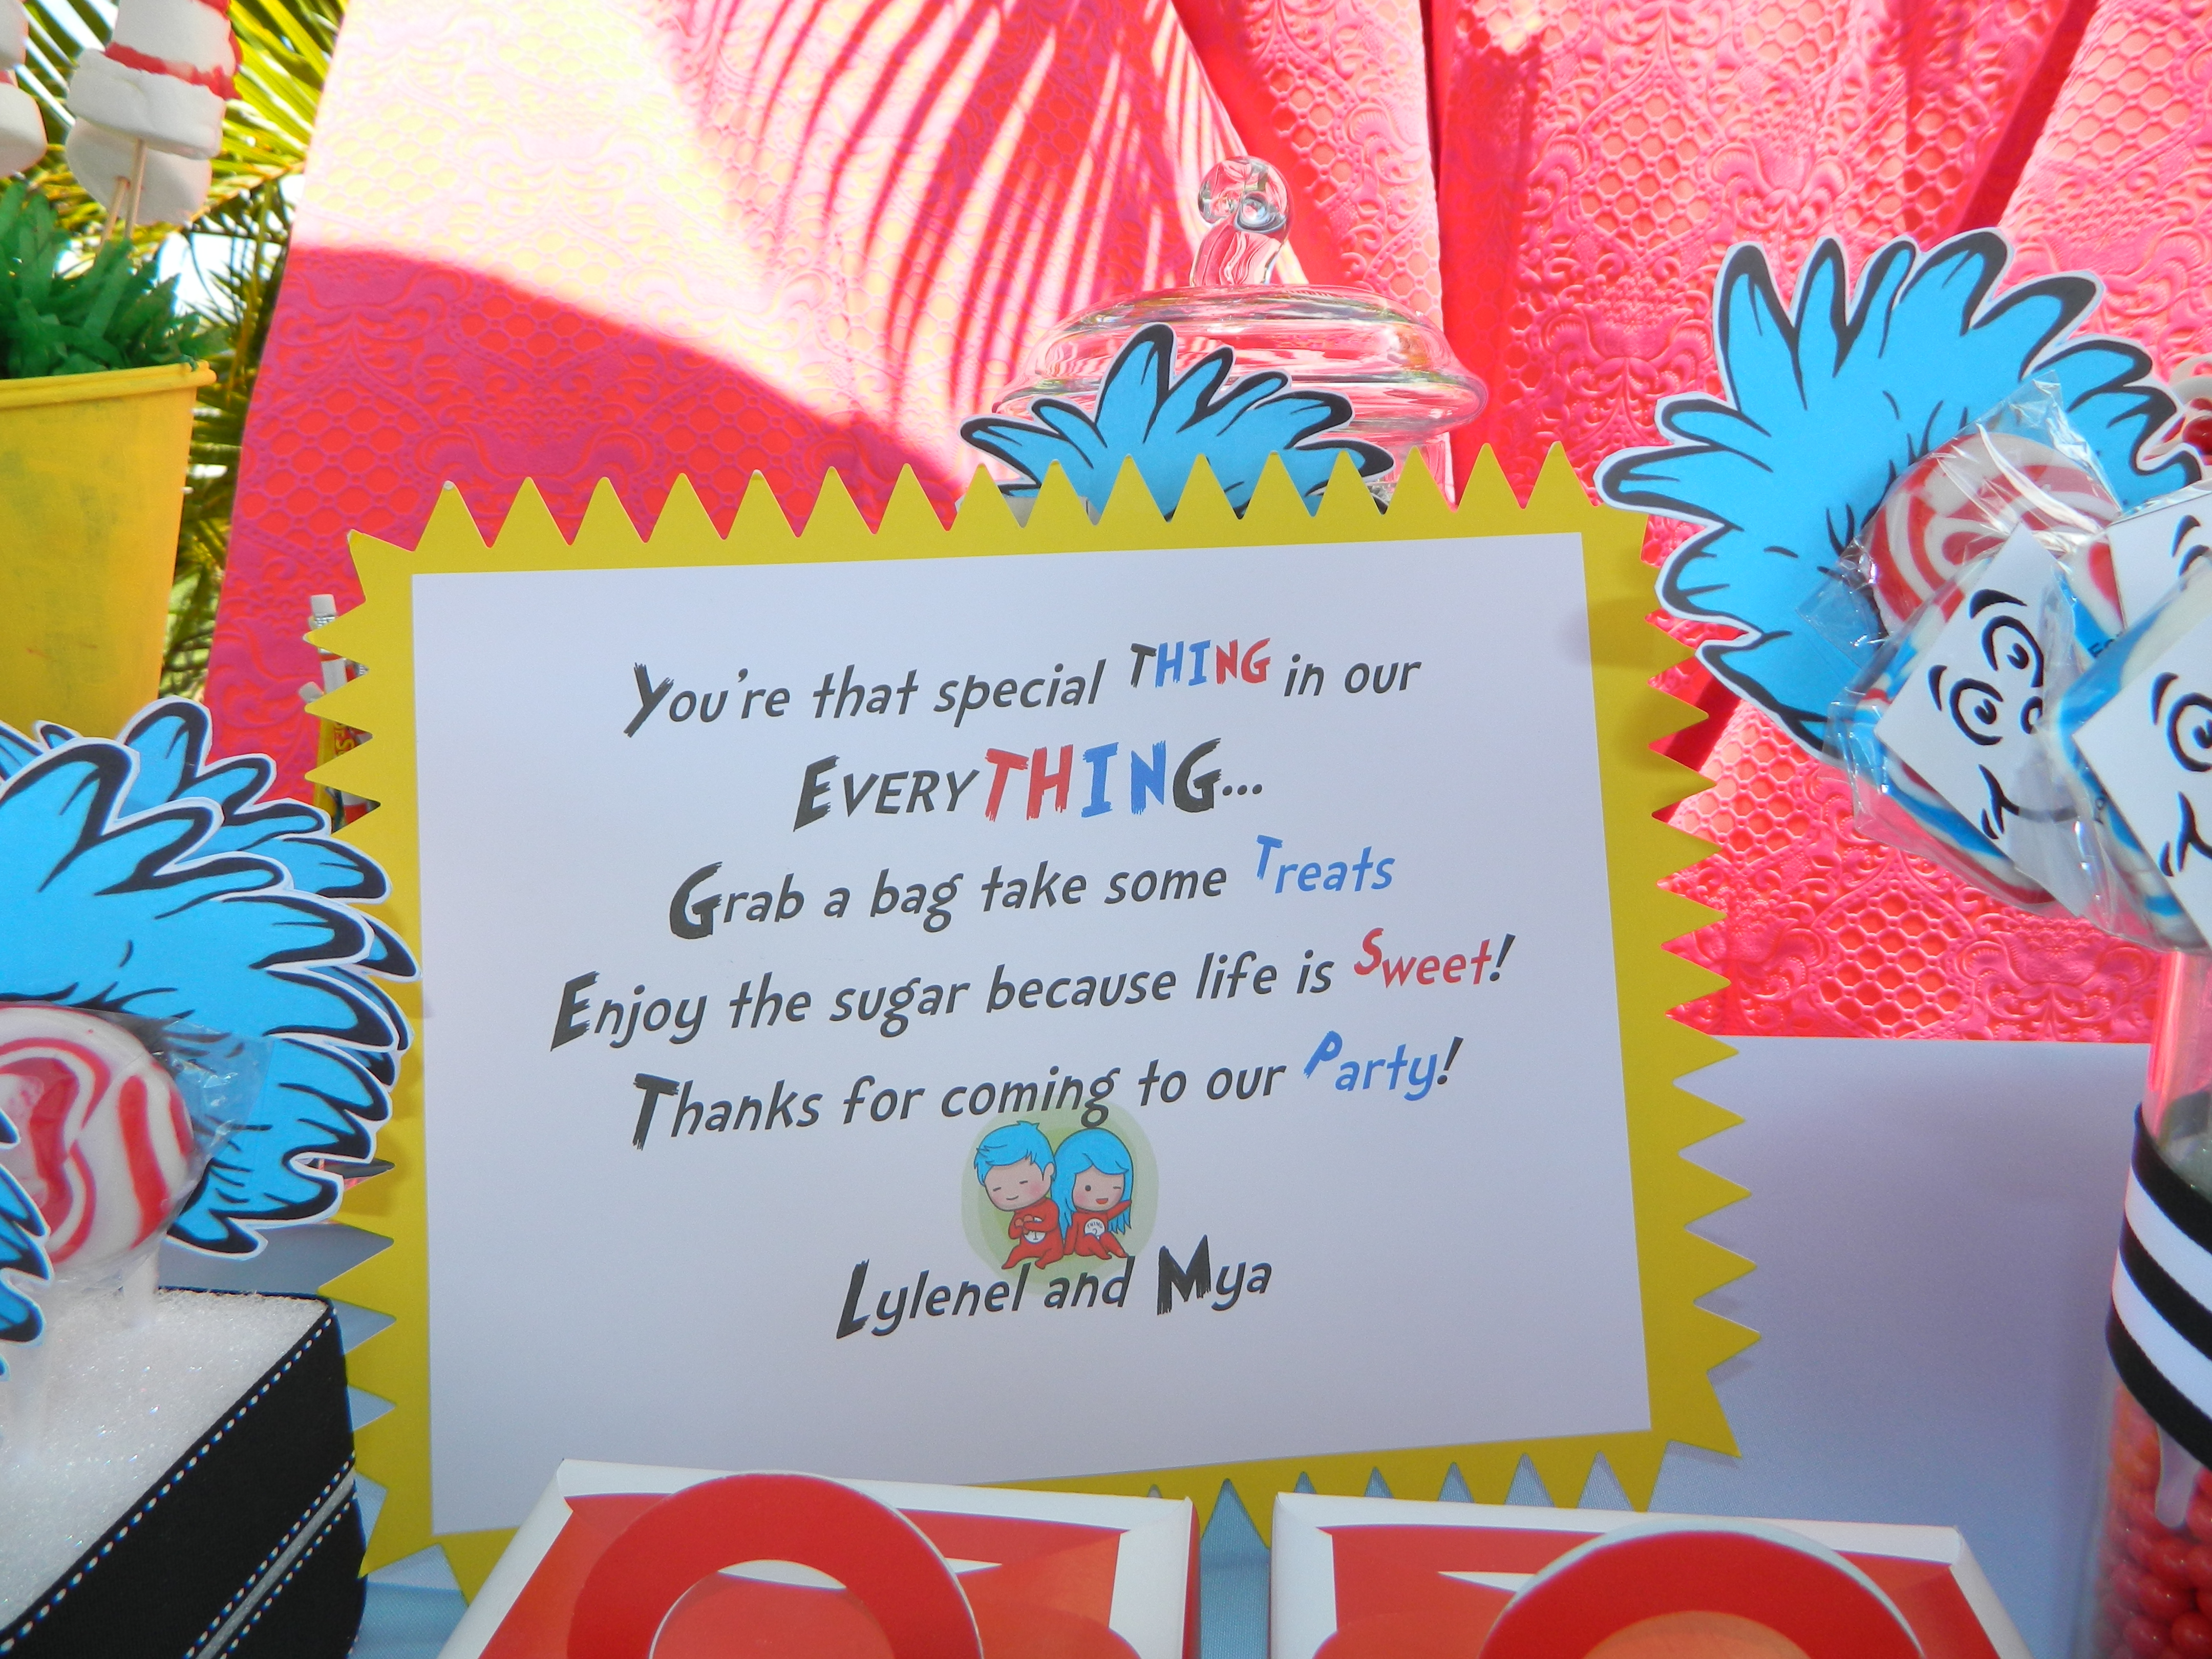 You're that special THING in our
EVERYTHING...
Grab a bag take some Treats
Enjoy the sugar because life is Sweet!
Thanks for coming to our Party!
Lylenel and Mya